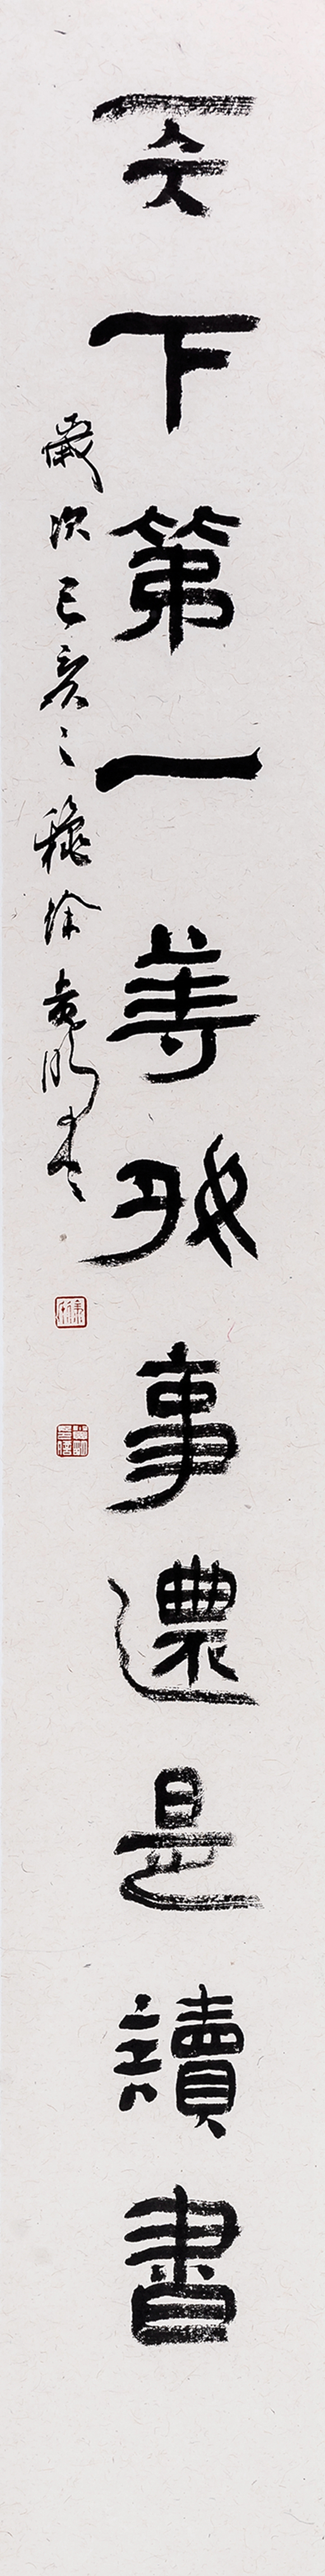 天下第一等好事還是讀書
歲次己亥之穐徐